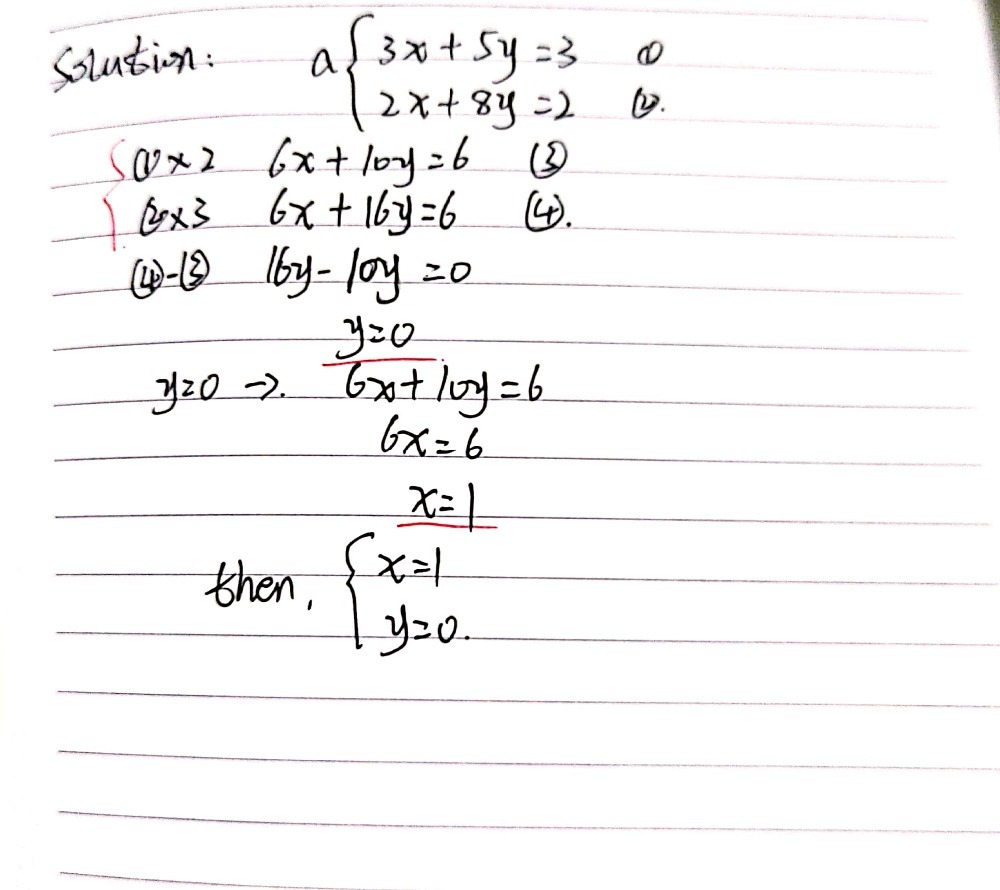 Solution: a { 3x + 5y = 3 ①
2x + 8y = 2 ②.
①×2 6x + 10y = 6 ③
②×3 6x + 16y = 6 ④.
④-③ 16y - 10y = 0
y = 0
y=0 →. 6x + 10y = 6
6x = 6
x = 1
then, { x = 1
y = 0.